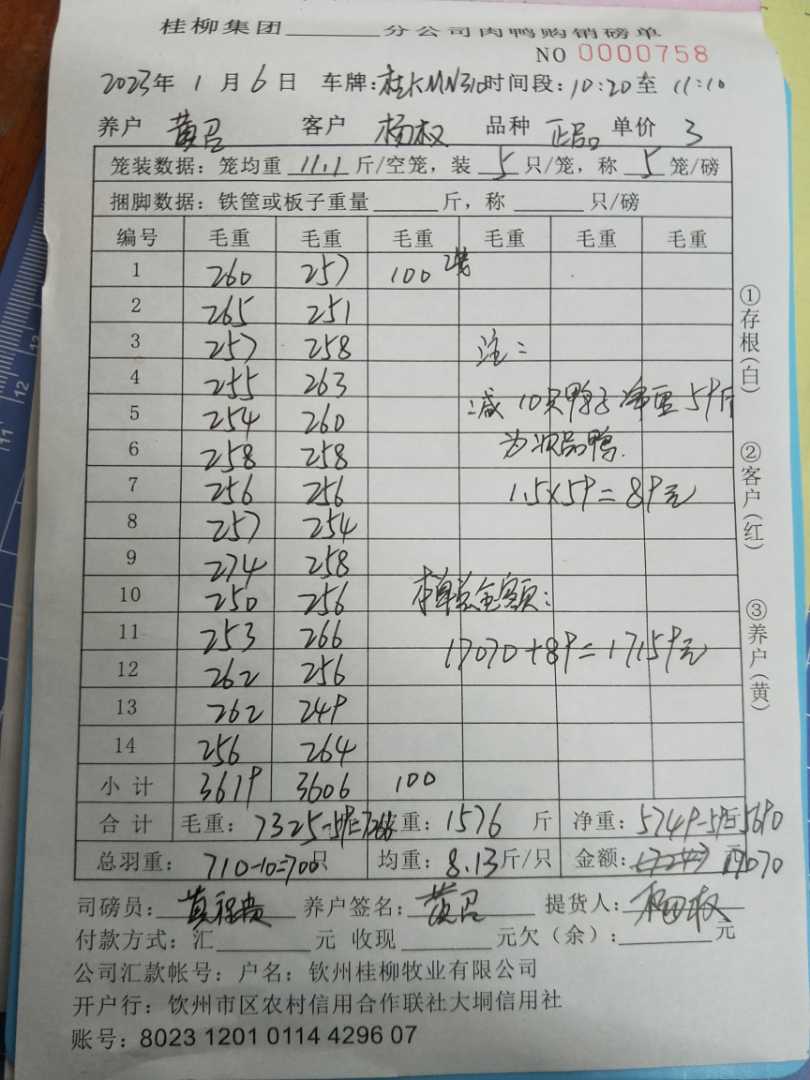 桂柳集团______分公司肉鸭购销磅单
NO 0000758
2023年 1月6日 车牌:桂KMN310时间段:10:20至 11:10
养户 黄召 客户 杨权 品种 正品 单价 3
笼装数据:笼均重 11.1 斤/空笼,装 5 只/笼,称 5 笼/磅
捆脚数据:铁筐或板子重量______斤,称______只/磅
编号 毛重 毛重 毛重 毛重 毛重 毛重
1 260 257 100 2笼
2 265 251
3 257 258 注:
4 255 263 减10只鸭子净重59斤
5 254 260
6 258 258 为次品鸭.
7 256 256 1.5×59=89元
8 257 254
9 274 258
10 250 256 本单总金额:
11 253 266 17070+89=17159元
12 262 256
13 262 249
14 256 264
小计 3619 3606 100
合计 毛重:7325-59=7266 重:1576 斤 净重:5749-59=5690
总羽重:710-10=700只 均重:8.13斤/只 金额:17247 17070
司磅员: 养户签名:黄召 提货人:杨权
付款方式:汇______元 收现______元欠(余):______元
公司汇款帐号:户名:钦州桂柳牧业有限公司
开户行:钦州市区农村信用合作联社大垌信用社
账号:8023 1201 0114 4296 07
①存根(白) ②客户(红) ③养户(黄)